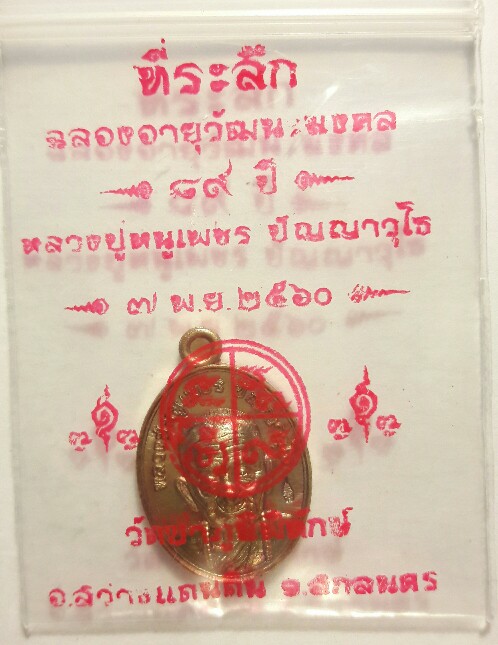 ที่ระลึก
ฉลองอายุวัฒนะมงคล
๘๙ ปี
หลวงปู่หนูเพชร ปัญญาวุโธ
๗ พ.ย. ๒๕๖๐
อ.สว่างแดนดิน จ.สกลนคร